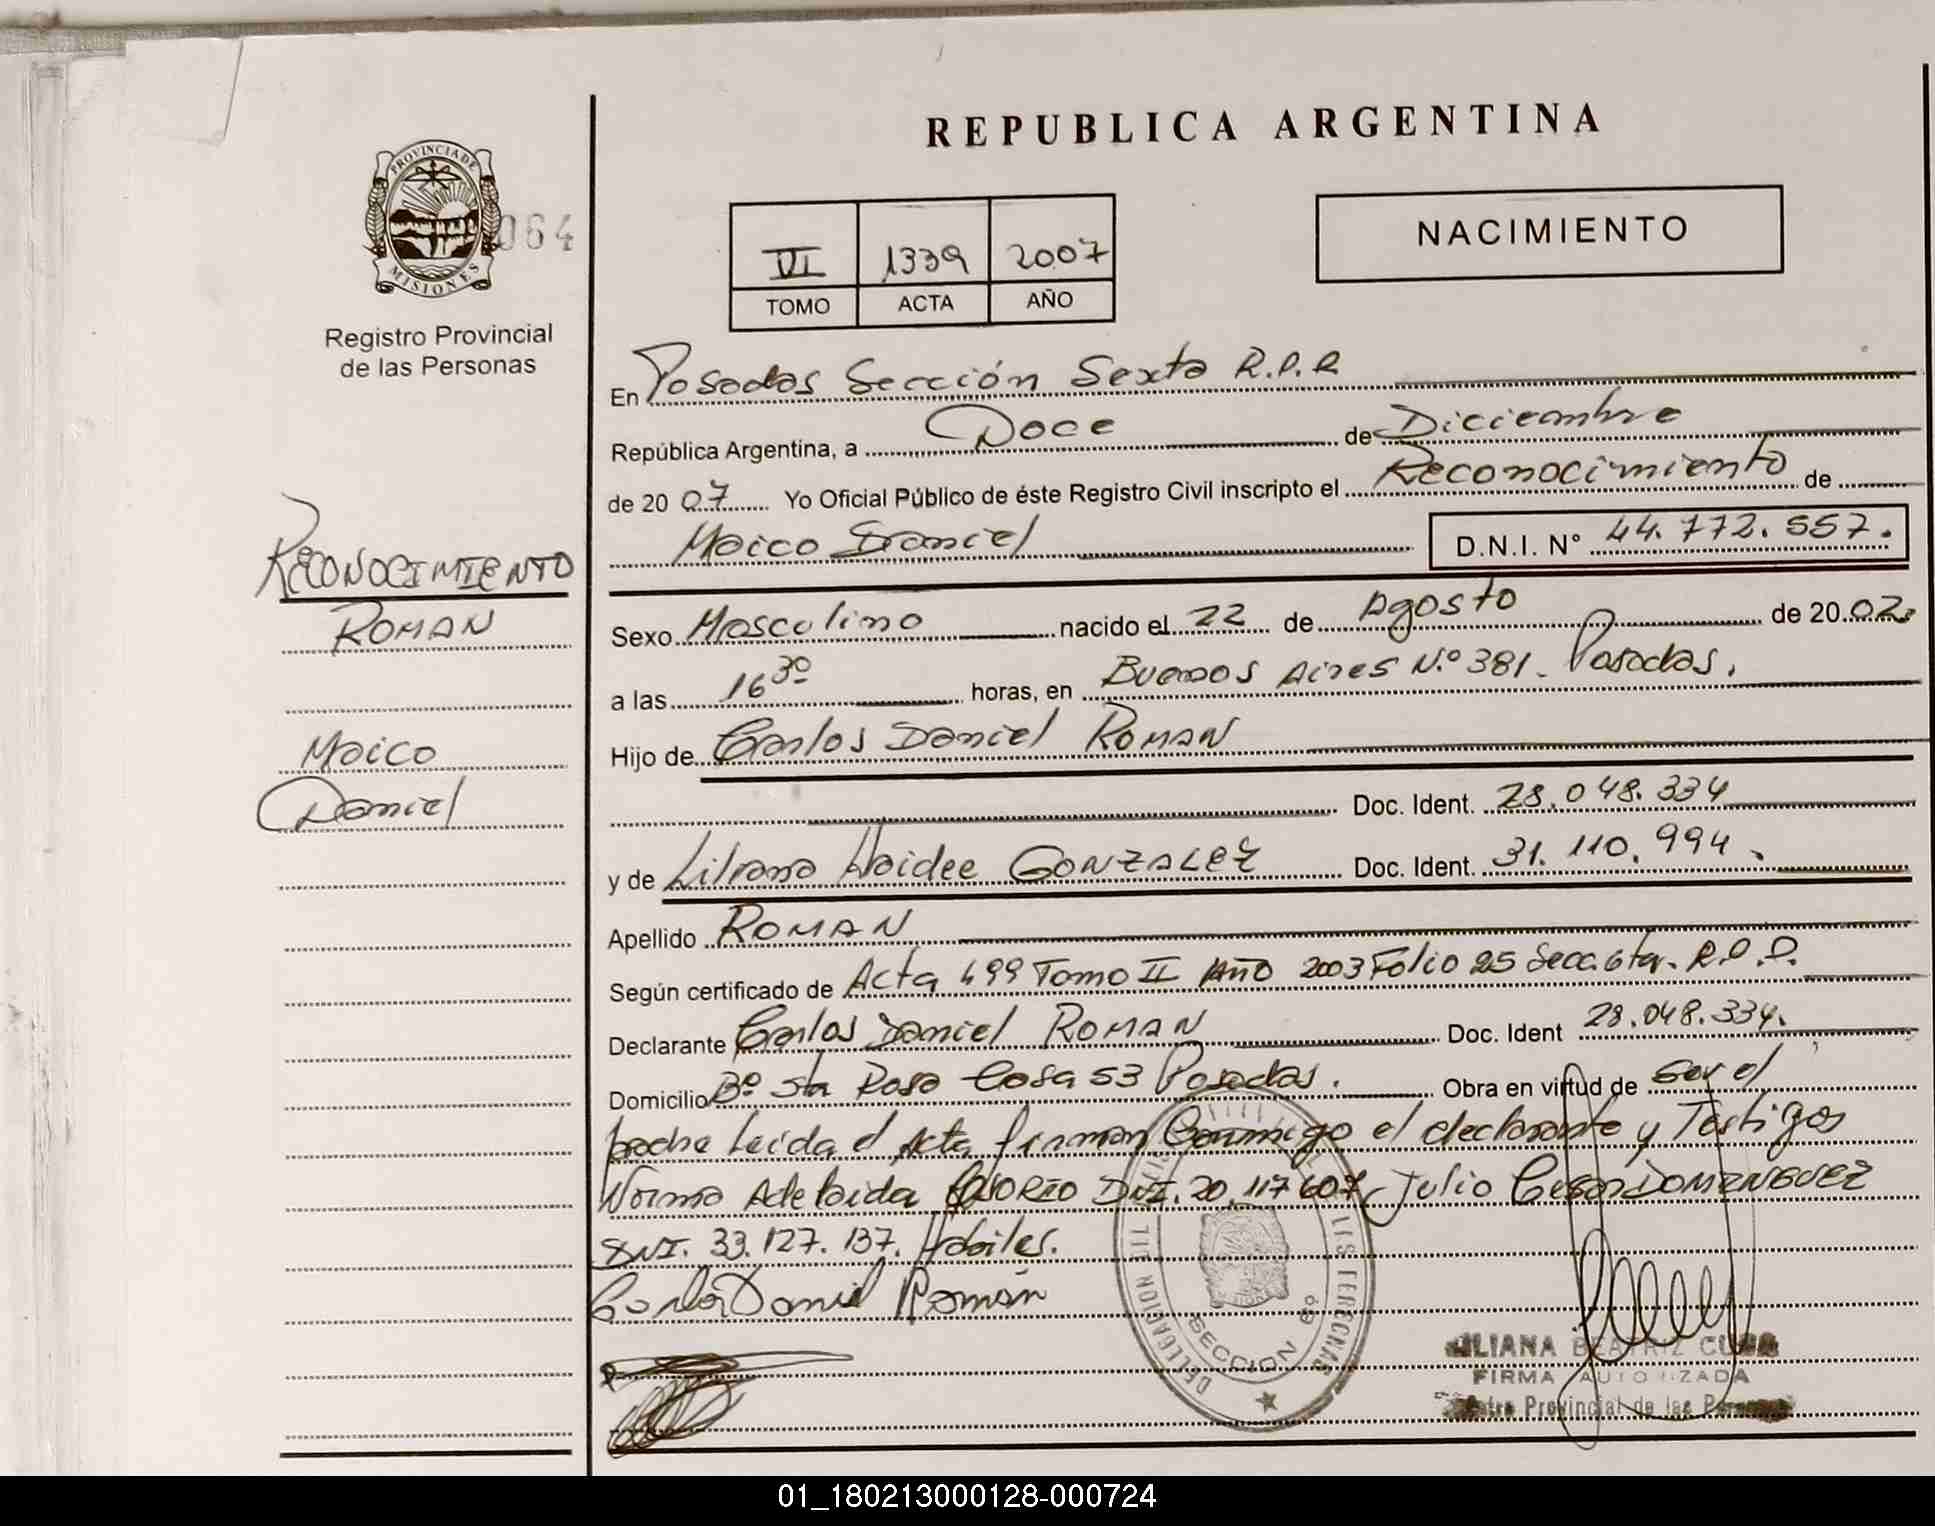 REPUBLICA ARGENTINA
PROVINCIA DE
MISIONES
064
Registro Provincial
de las Personas
VI 1339 2007
TOMO ACTA AÑO
NACIMIENTO
En Posadas Sección Sexta R.P.P.
República Argentina, a Doce de Diciembre
de 2007 Yo Oficial Público de éste Registro Civil inscripto el Reconocimiento de
Maico Daniel D.N.I. Nº 44.772.557.
Sexo Masculino nacido el 22 de Agosto de 2002
a las 16 30 horas, en Buenos Aires N.º 381. Posadas.
Hijo de Carlos Daniel ROMAN
Doc. Ident. 28.048.334
y de Liliana Haidee GONZALEZ Doc. Ident. 31.110.994.
Apellido ROMAN
Según certificado de Acta 499 Tomo II Año 2003 Folio 25 Secc. 6ta. R.P.P.
Declarante Carlos Daniel ROMAN Doc. Ident 28.048.334.
Domicilio Bº Sta Rosa Casa 53 Posadas. Obra en virtud de Ser el
padre Leida el Acta firman Conmigo el declarante y Testigos
Norma Adelaida DNI. 20.117.607 Julio Cesar DOMINGUEZ
DNI. 33.127.137. Habiles.
Carlos Daniel Román
RECONOCIMIENTO
ROMAN
Maico
Daniel
DELEGACION
SECCION 6º
BEATRIZ
FIRMA AUTORIZADA
Provincial de las
01_180213000128-000724